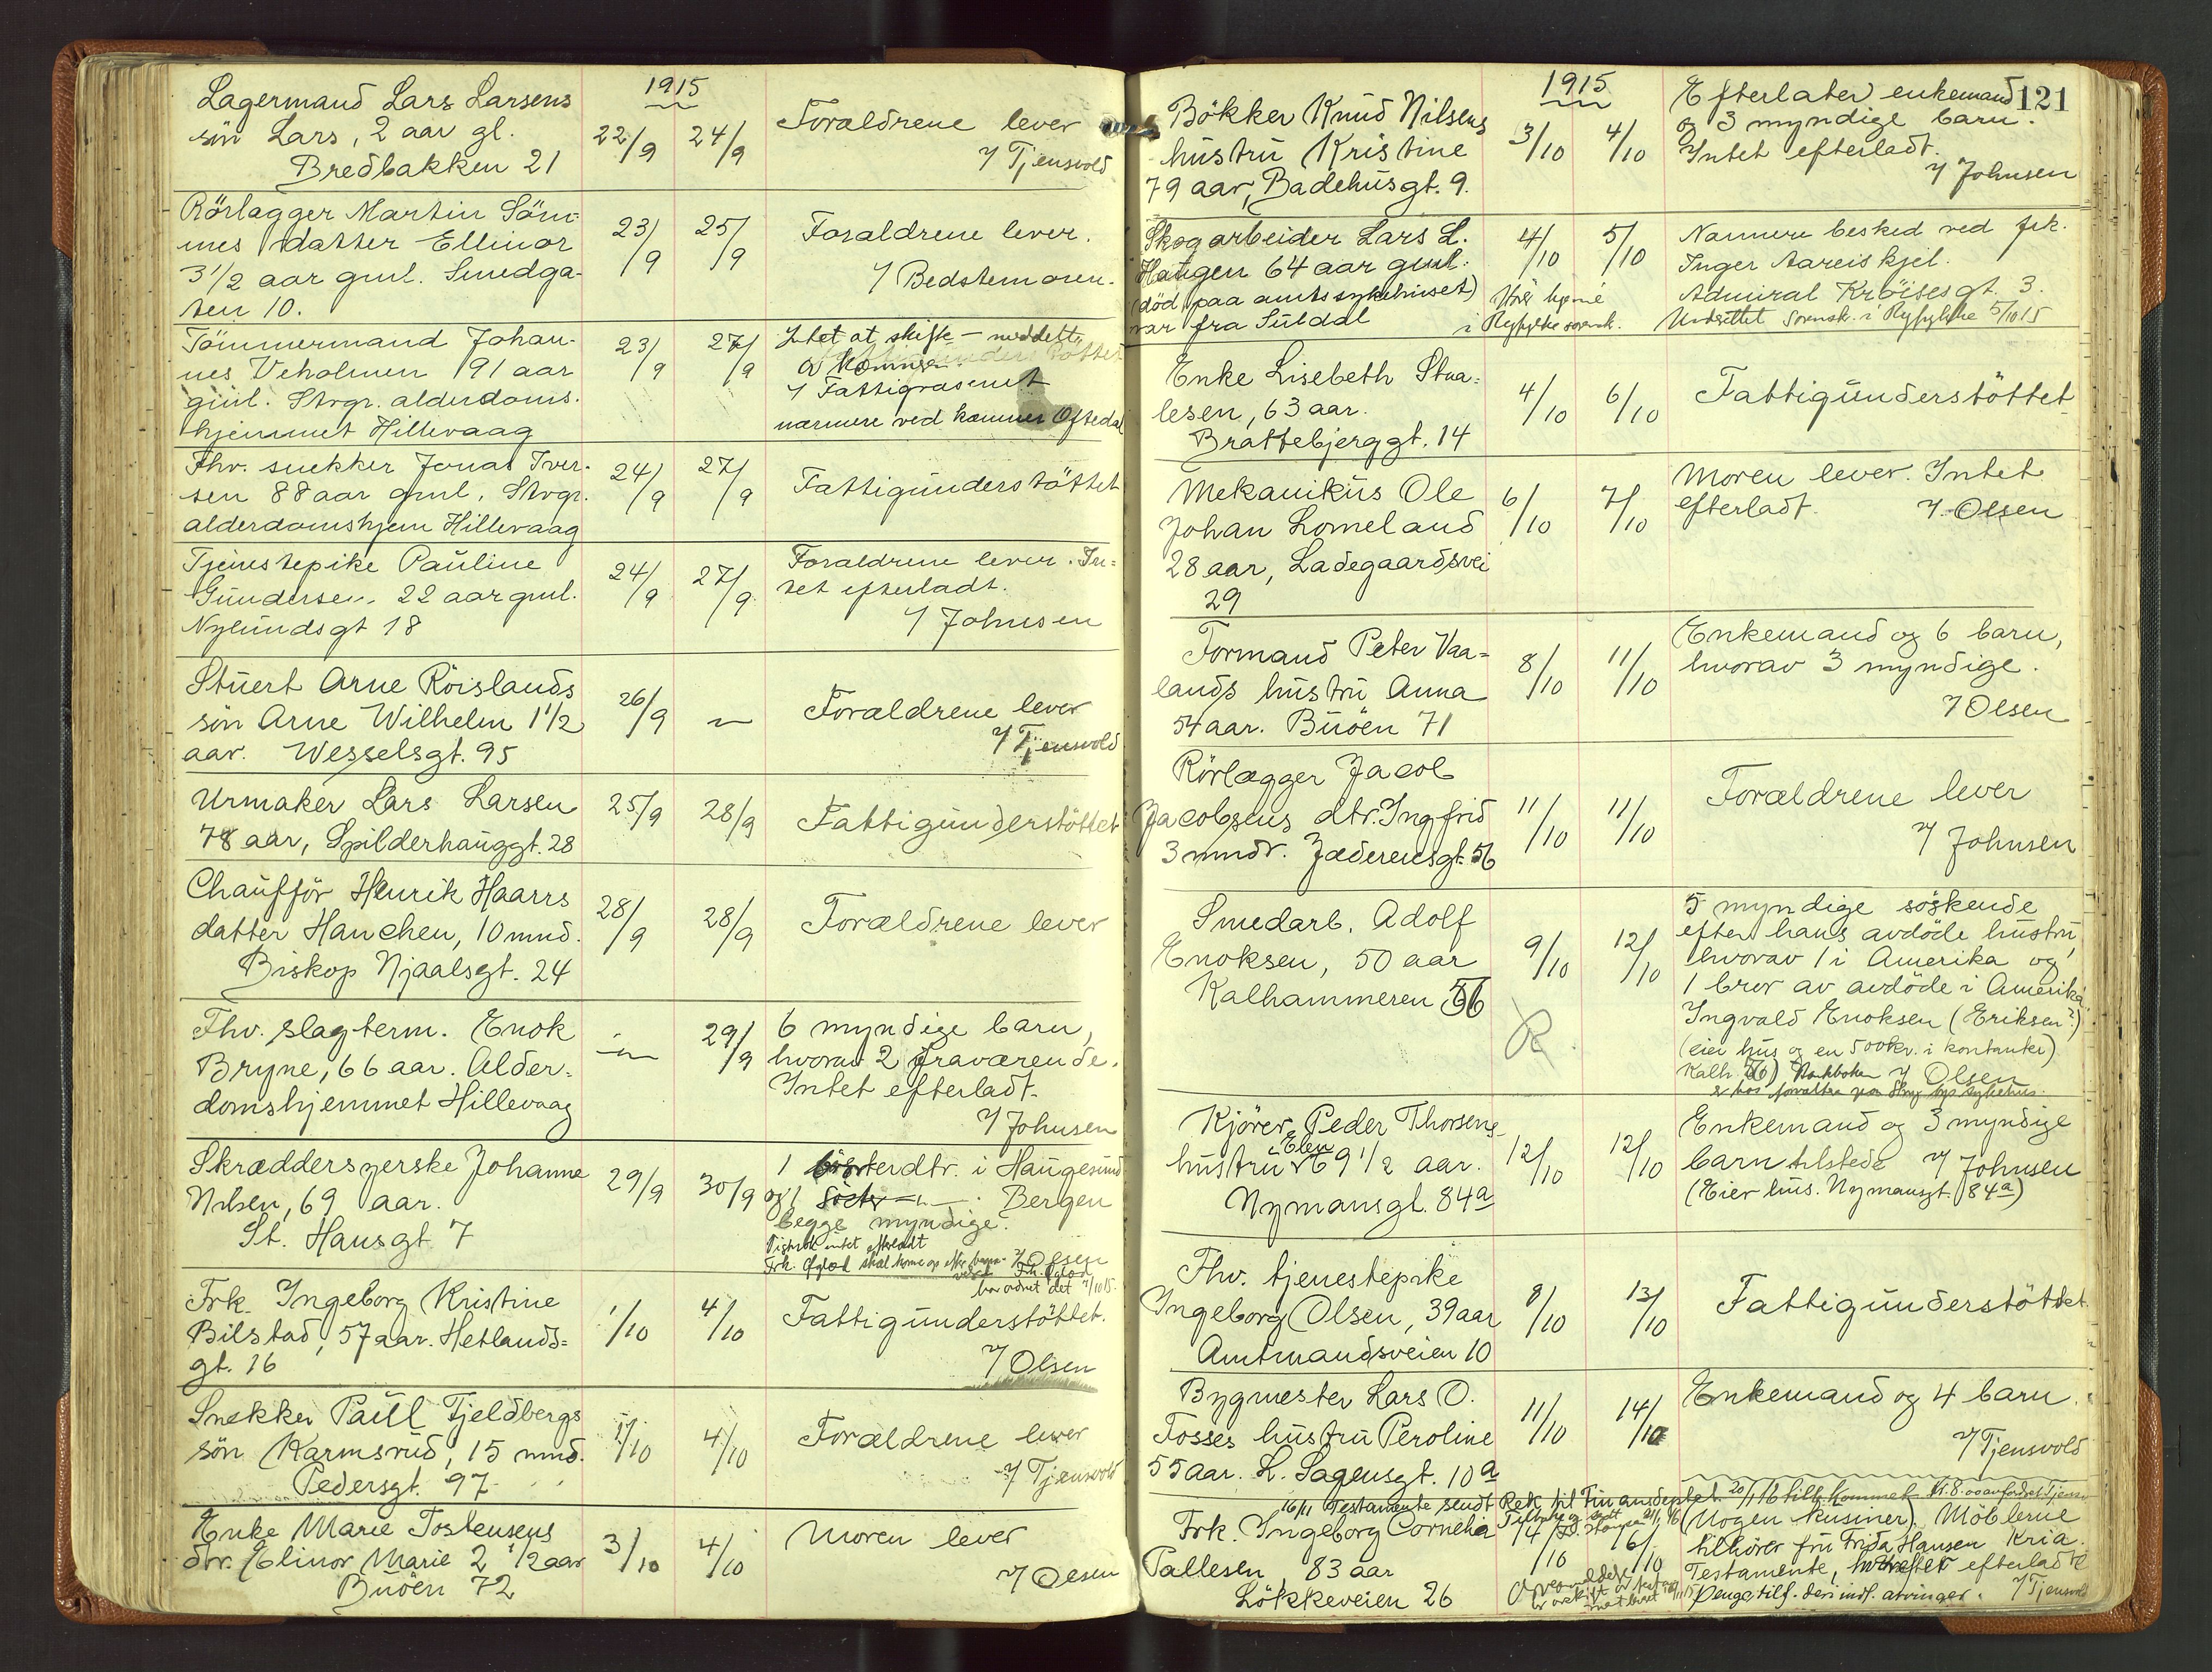 1915
Lagermand Lars Larsens
sön Lars, 2 aar gl.
Bredbakken 21
22/9 24/9
Forældrene lever
Tjensvold
Rörlægger Martin Söm-
mes datter Ellinor
3 1/2 aar gml. Smedga-
ten 10.
23/9 25/9
Forældrene lever.
Bedstemoren.
Tömmermand Johan-
nes Veholmen 91 aar
gml. Stvgr. alderdoms-
hjemmet Hillevaag
23/9 27/9
Intet at skifte – meddelt
Fattigvæsenet
nærmere ved kæmner Oftedal
Fhv. snekker Jonas Iver-
sen 88 aar gml. Stvgr.
alderdomshjem Hillevaag
24/9 27/9
Fattigunderstöttet
Tjenestepike Pauline
Gundersen, 22 aar gml.
Nylundsgt 18
24/9 27/9
Forældrene lever. In-
tet efterladt.
Johnsen
Stuert Arne Röislands
sön Arne Wilhelm 1 1/2
aar. Wesselsgt. 95
26/9 –"–
Forældrene lever
Tjensvold
Urmaker Lars Larsen
78 aar, Spilderhauggt. 28
25/9 28/9
Fattigunderstöttet
Chaufför Henrik Haarrs
datter Hanchen, 10 mnd.
Biskop Njaalsgt. 24
28/9 28/9
Forældrene lever
Fhv. slagterm. Enok
Bryne, 66 aar. Alder-
domshjemmet Hillevaag
–"– 29/9
6 myndige barn,
hvorav 2 fraværende.
Intet efterladt.
Johnsen
Skrædderszerske Johanne
Nilsen, 69 aar.
St. Hansgt 7
29/9 30/9
1 dtr. i Haugesund
og 1 –"– Bergen
begge myndige.
intet efterladt
Olsen
Frk. skal komme op
har ordnet det
Frk. Ingeborg Kristine
Bilstad, 57 aar. Hetlands-
gt. 16
1/10 4/10
Fattigunderstöttet.
Olsen
Snekker Paul Tjeldbergs
sön Karmsvud, 15 mnd.
Pedersgt. 97
1/10 4/10
Forældrene lever
Tjensvold
Enke Marie Tostensens
dtr. Elinor Marie 2 1/2 aar
Buöen 72
3/10 4/10
Moren lever
Olsen
121
1915
Bökker Knud Nilsens
hustru Kristine
79 aar, Badehusgt. 9.
3/10 4/10
Efterlater enkemand
og 3 myndige barn.
Intet efterladt.
Johnsen
Skogarbeider Lars L.
Haugen 64 aar gml.
(död paa amtssykehuset)
var fra Suldal
4/10 5/10
i Ryfylke sorensk.
Nærmere besked ved frk.
Inger Aareiskjel.
Admiral Kröisesgt. 3.
Undrettet Sorensk. i Ryfylke 5/10 15
Enke Lisebeth Staa-
lesen, 63 aar.
Brattebjerggt. 14
4/10 6/10
Fattigunderstöttet
Mekanikus Ole
Johan Lomeland
28 aar, Ladegaardsvei
29
6/10 7/10
Moren lever. Intet
efterladt. Olsen
Formand Peter Vaa-
lands hustru Anna
54 aar. Buöen 71
8/10 11/10
Enkemand og 6 barn,
hvorav 3 myndige.
Olsen
Rörlægger Jacob
Jacobsens dtr. Ingfrid
3 mndr. Jæderensgt. 56
11/10 11/10
Forældrene lever
Johnsen
Smedarb. Adolf
Enoksen, 50 aar
Kalhammeren 56
9/10 12/10
R
5 myndige söskende
efter hans avdöde hustru,
hvorav 1 i Amerika og
1 bror av avdöde i Amerika
Ingvald Enoksen (Eriksen?)
(eier hus og en 500 kr. i kontanter)
Kalh. 56) Bankboken Olsen
er hos forvalter paa Stvg. bys sykehus.
Kjörer Peder Thorsens
hustru Elen 69 1/2 aar.
Nymansgt. 84a
12/10 12/10
Enkemand og 3 myndige
barn tilstede Johnsen
(Eier hus. Nymansgt. 84a)
Fhv. tjenestepike
Ingeborg Olsen, 39 aar
Amtmandsveien 10
8/10 13/10
Fattigunderstöttet
Bygmester Lars O.
Fosses hustru Peroline
55 aar. L. Sagensgt. 10a
11/10 14/10
Enkemand og 4 barn.
Tjensvold
16/11 Testamente sendt Rek. til Finansdeptet.
Frk. Ingeborg Cornelia
Pallesen, 83 aar
Lökkeveien 26
14/10 16/10
(Nogen kusiner) Möblerne
tilhörer fru Frida Hansen Kria.
Testamente, efterladte
Penge tilf. deri indf. arvinger. Tjensvold